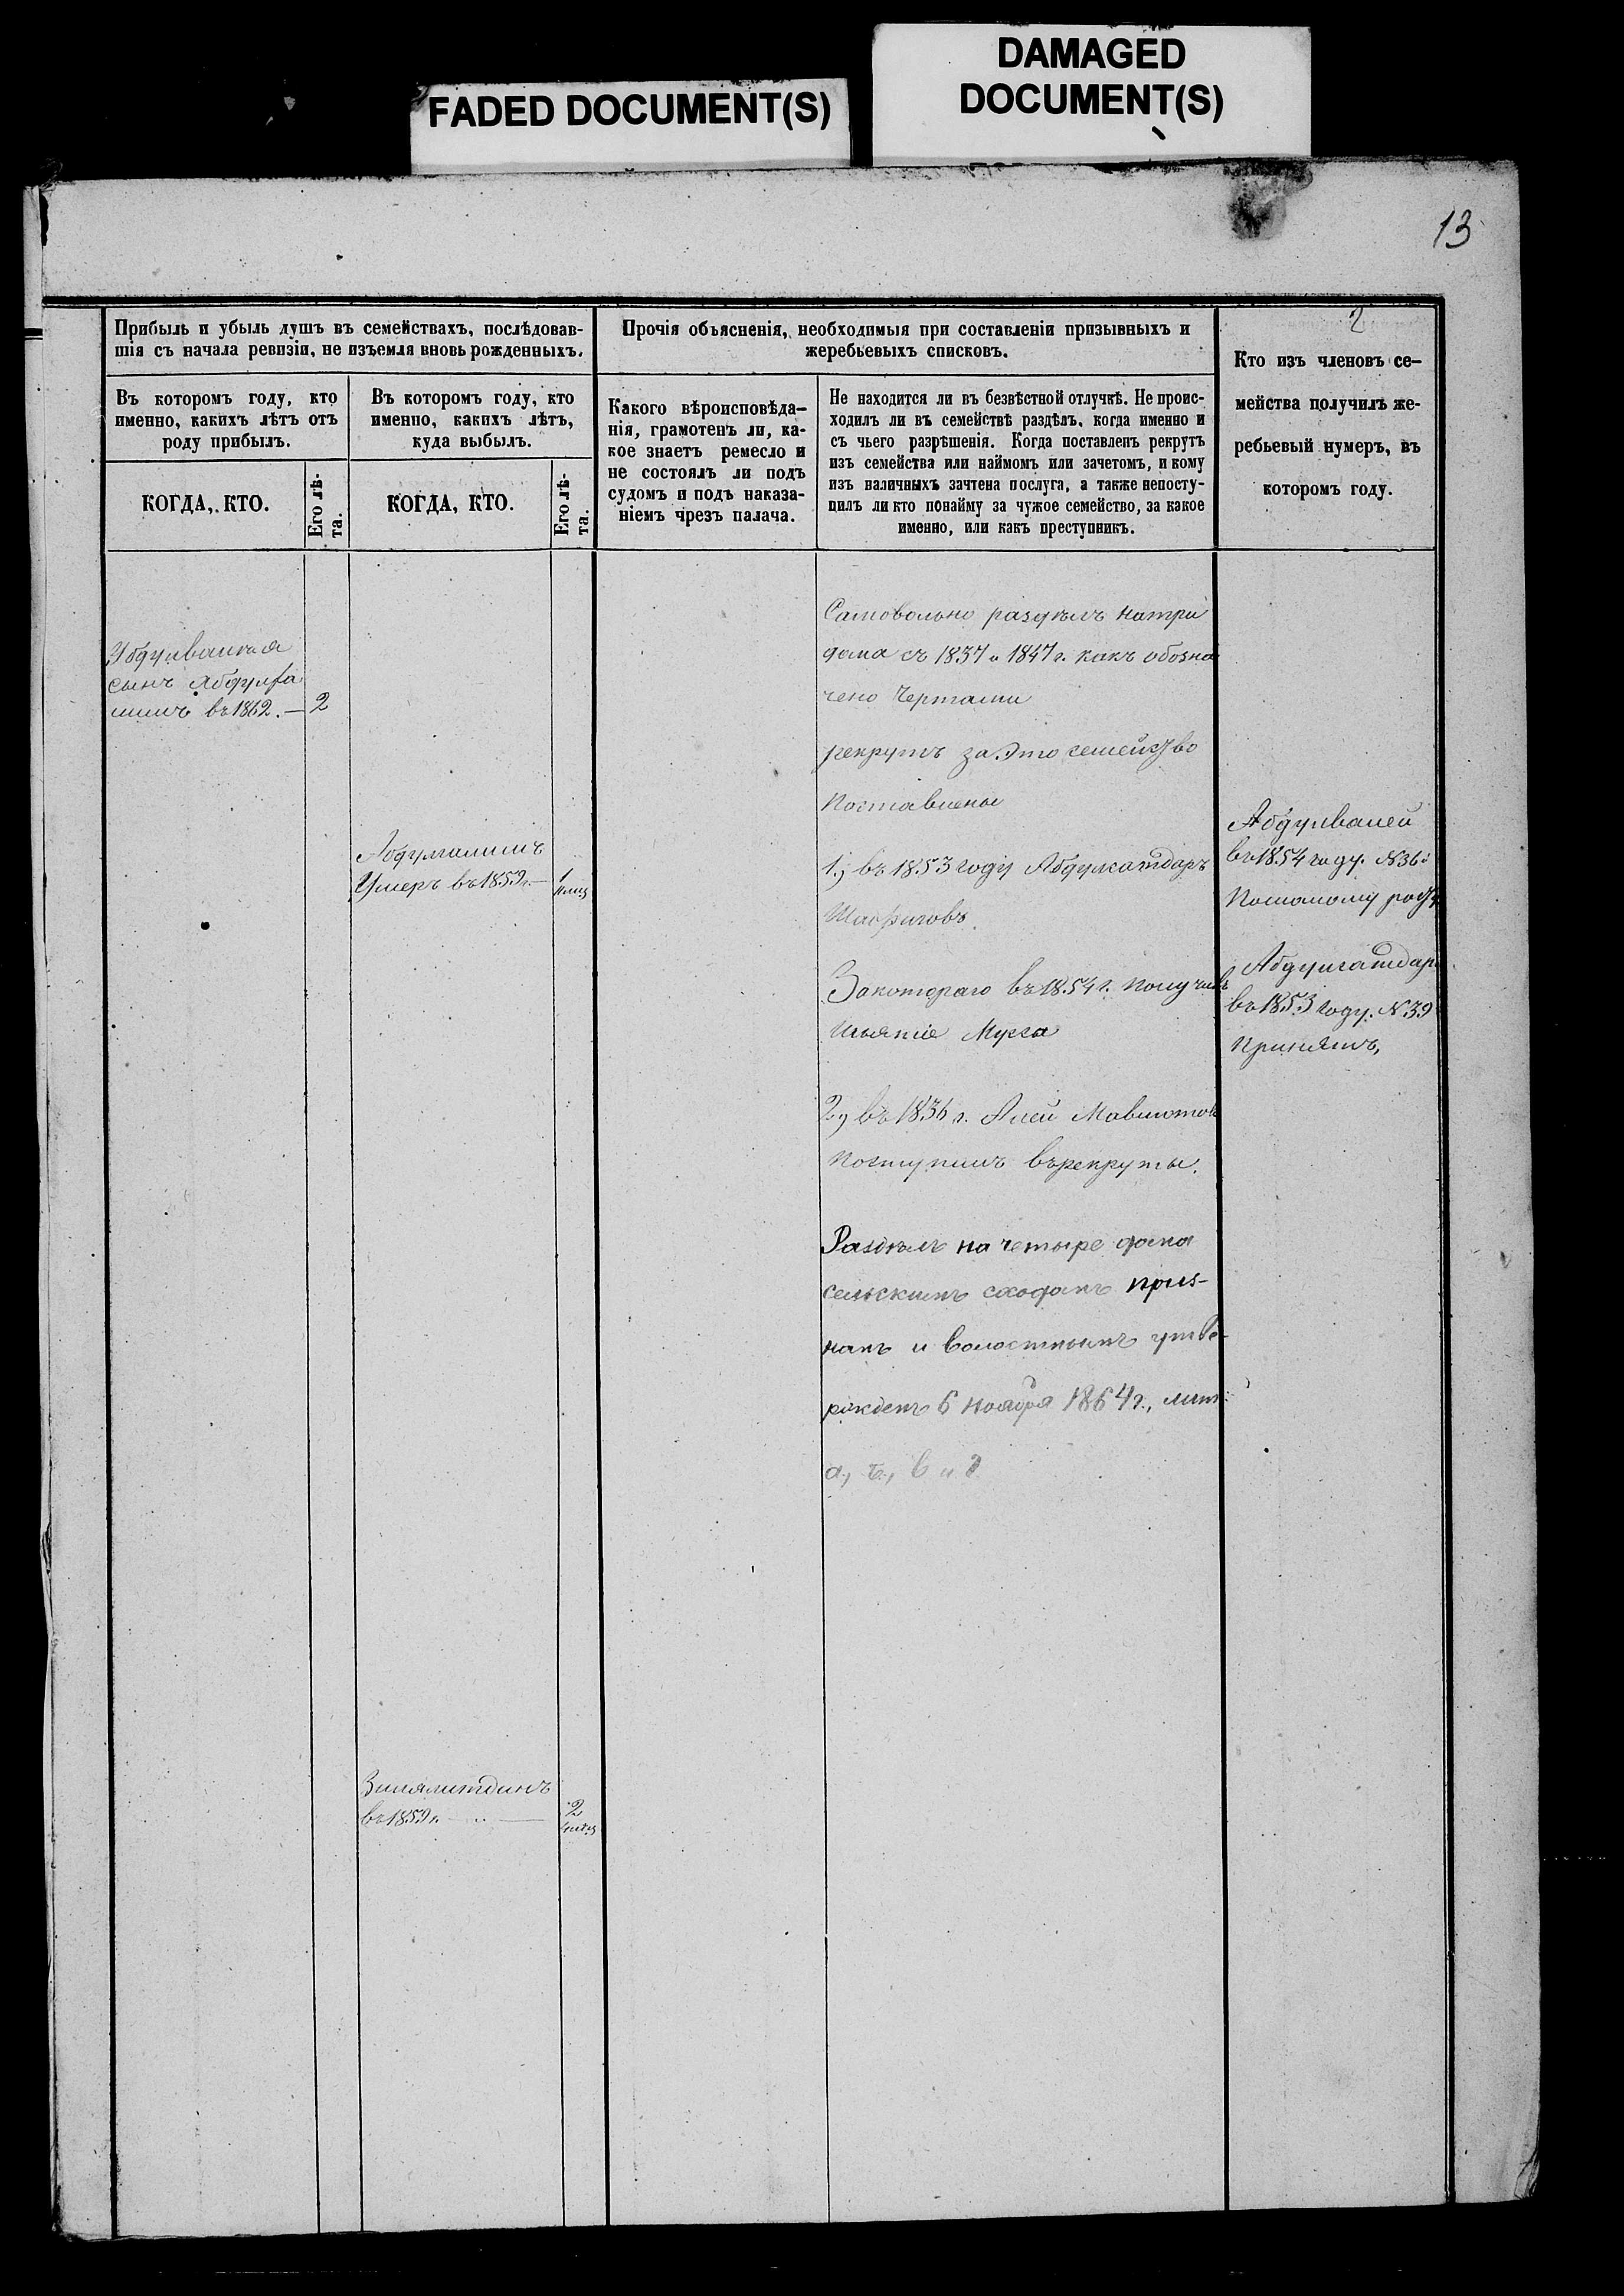 FADED DOCUMENT(S)
DAMAGED
DOCUMENT(S)
13
2
Прибыль и убыль душъ въ семействахъ, послѣдовав-
шія съ начала ревизіи, не изъемля вновь рожденныхъ.
Въ которомъ году, кто
именно, какихъ лѣтъ отъ
роду прибылъ.
КОГДА, КТО.
Его лѣ-
та.
Въ которомъ году, кто
именно, какихъ лѣтъ,
куда выбылъ.
КОГДА, КТО.
Его лѣ-
та.
Прочія объясненія, необходимыя при составленіи призывныхъ и
жеребьевыхъ списковъ.
Какого вѣроисповѣда-
нія, грамотенъ ли, ка-
кое знаетъ ремесло и
не состоялъ ли подъ
судомъ и подъ наказа-
ніемъ чрезъ палача.
Не находится ли въ безвѣстной отлучкѣ. Не проис-
ходилъ ли въ семействѣ раздѣлъ, когда именно и
съ чьего разрѣшенія. Когда поставленъ рекрутъ
изъ семейства или наймомъ или зачетомъ, и кому
изъ наличныхъ зачтена послуга, а также непосту-
пилъ ли кто понайму за чужое семейство, за какое
именно, или какъ преступникъ.
Кто изъ членовъ се-
мейства получилъ же-
ребьевый нумеръ, въ
которомъ году.
сынъ
въ 1862. — 2
Умеръ въ 1859 г. — 1
въ 1859 г. — „ — 2
Самовольно раздѣлъ натри
дома съ 1837 и 1847 г. какъ обозна
чено Чертами
рекрутъ за Это семейство
Поставлены
1, въ 1853 году Абдулкатдаръ
Шафиговъ.
Закотораго въ 1854 г. получилъ
Муса
2, въ 1836 г. Алей
Поступилъ върекруты.
Раздѣлъ на четыре дома
сельскимъ сходомъ приз-
нанъ и волостнымъ утве-
ржденъ 6 Ноября 1864 г., лит:
а, б, в и г
Абдулвалей
въ 1854 году. N 36й
въ 1853 году. N 39
Принятъ,